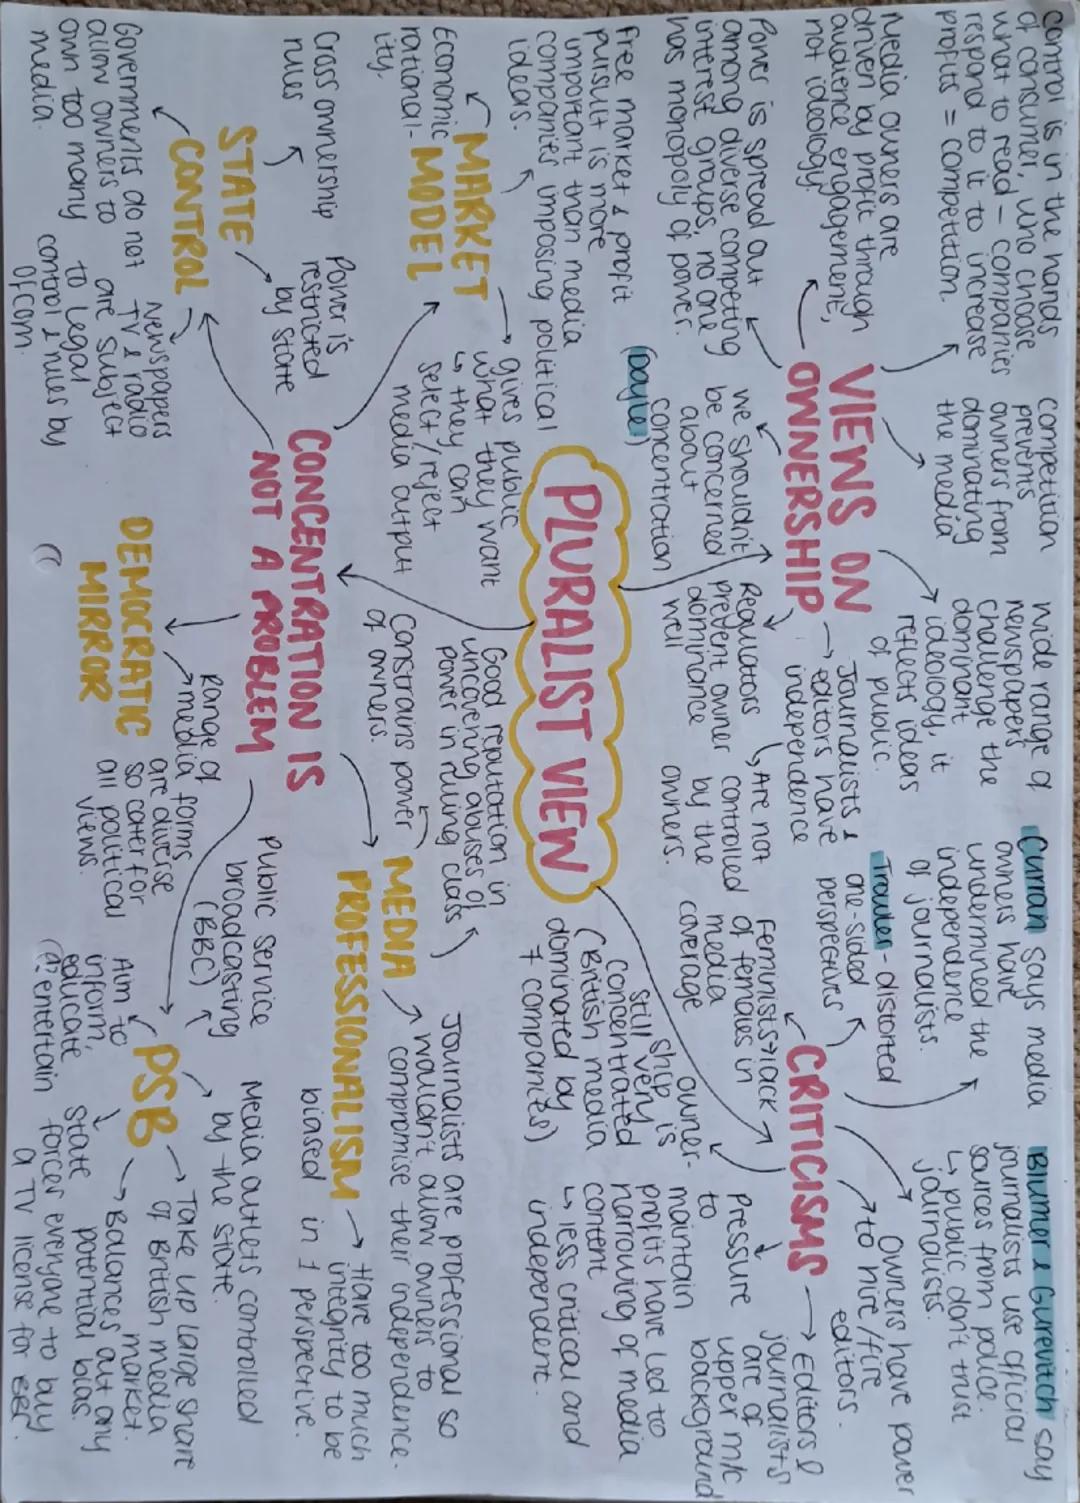 control is in the hands
of consumer, who choose
what to read - companies
respond to it to increase
profits = competition.
competition
prevents
owners from
dominating
the media
wide range of
newspapers
challenge the
dominant
ideology, it
reflects ideas
of public.
Curran says media
owners have
undermined the
independence
of journalists.
Blumer & Gurevitch say
journalists use official
sources from police.
↳ public don't trust
journalists.
Media owners are
driven by profit through
audience engagement,
not ideology.
VIEWS ON
OWNERSHIP
Journalists &
editors have
independence
Trowler - distorted
one-sided
perspectives
Owners have power
to hire/fire
editors.
Power is spread out
among diverse competing
interest groups, no one
has monopoly of power.
we shouldn't
be concerned
about
concentration
(Doyle)
Regulators
prevent owner
dominance
well
↳ Are not
controlled
by the
owners.
Feminists → lack
of females in
media
coverage
CRITICISMS
Editors &
journalists
are of
upper m/c
background
free market & profit
pursuit is more
important than media
companies imposing political
ideas.
owner-
ship is
still very
concentrated
(British media
dominated by
7 companies)
Pressure
to
maintain
profits have led to
narrowing of media
content
↳ less critical and
independent.
PLURALIST VIEW
MARKET
MODEL
Economic
rational-
ity.
gives public
what they want
↳ they can
select/reject
media output
Good reputation in
uncovering abuses of
power in ruling class
Constrains power
of owners.
MEDIA
PROFESSIONALISM
Journalists are professional so
wouldn't allow owners to
compromise their independence.
Have too much
integrity to be
biased in 1 perspective.
CONCENTRATION IS
NOT A PROBLEM
Cross ownership
rules
Power is
restricted
by state
STATE
CONTROL
Governments do not
allow owners to
own too many
media.
Newspapers
TV & radio
are subject
to legal
control & rules by
Ofcom.
DEMOCRATIC
MIRROR
Range of
media forms
are diverse
so cater for
all political
views.
Public service
broadcasting
(BBC)
PSB
Media outlets controlled
by the state.
Aim to
inform,
educate
& entertain
Take up large share
of British media
market.
Balances out any
potential bias.
State
forces everyone to buy
a TV license for